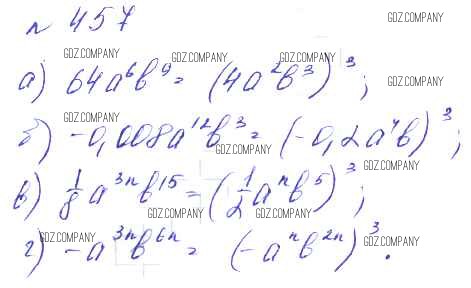 № 457
GDZ.COMPANY
GDZ.COMPANY GDZ.COMPANY GDZ.COMPANY
а) 64a⁶b⁹ = (4a²b³)³; GDZ.COMPANY
GDZ.COMPANY GDZ.COMPANY
б) -0,008a¹²b³ = (-0,2a⁴b)³;
GDZ.COMPANY GDZ.COMPANY
в) 1/8 a³ⁿb¹⁵ = (1/2 aⁿb⁵)³;
GDZ.COMPANY GDZ.COMPANY
г) -a³ⁿb⁶ⁿ = (-aⁿb²ⁿ)³.
GDZ.COMPANY GDZ.COMPANY